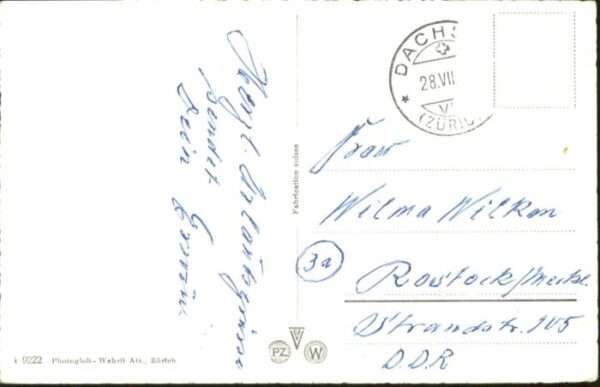 Herzl. Urlaubsgrüsse
sendet
Dein Erwin
Frau
Wilma Wilken
3a
Rostock/Meckl.
Strandstr. 105
D.D.R
DACHS
28.VII
VI
(ZÜRIC
Fabrication suisse
k 9222 Photoglob-Wehrli AG., Zürich
PZ
V
W